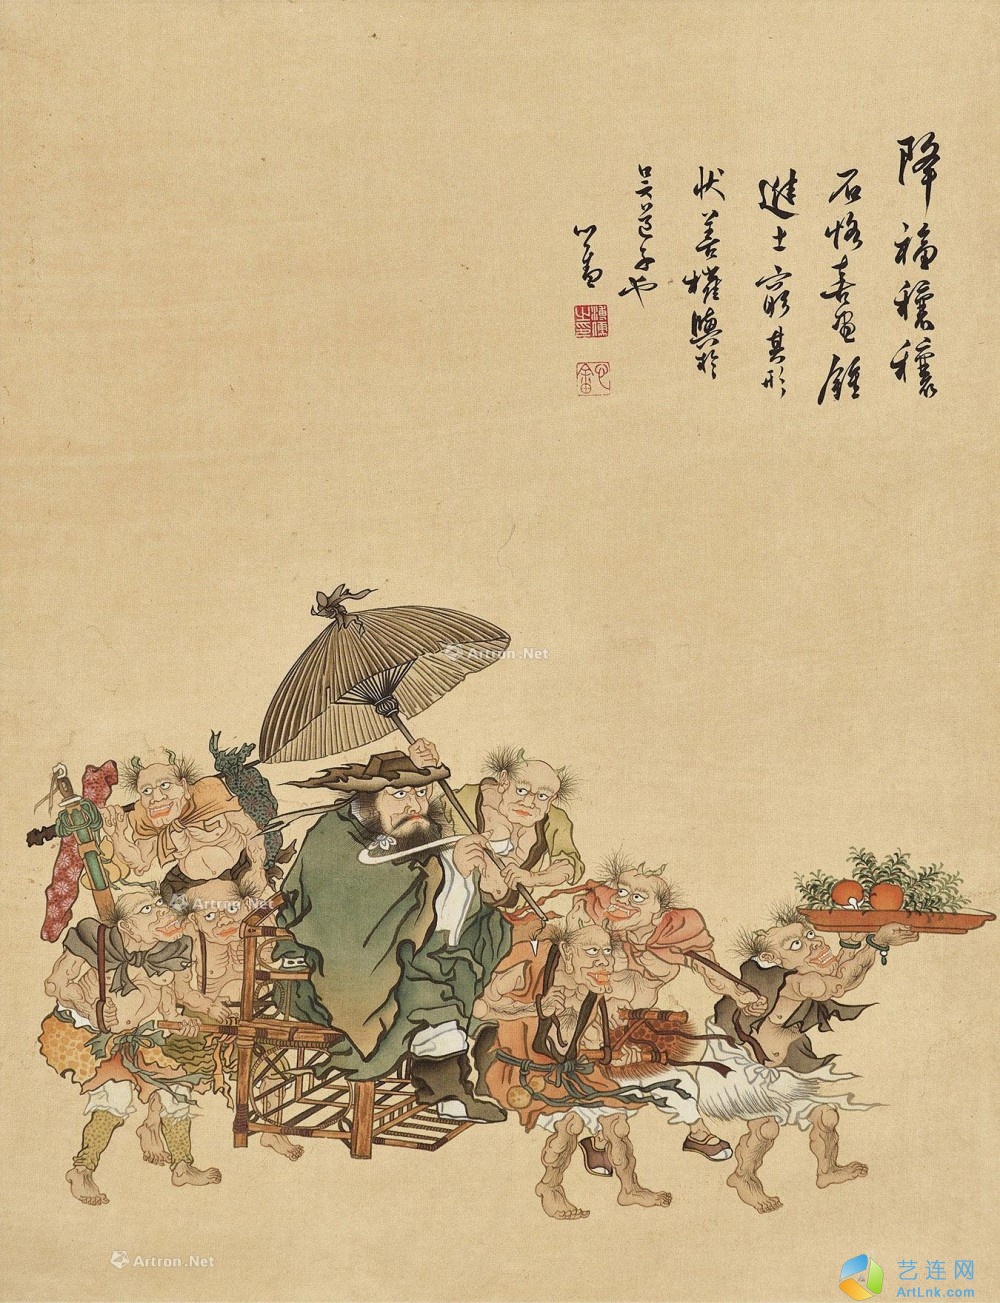 降福穰穰
石恪喜画鍾
進士窮其形
狀善權輿於
吳道子也
心畬
溥儒之印
心畬
Artron.Net
Artron.Net
Artron.Net
艺连网
ArtLnk.com